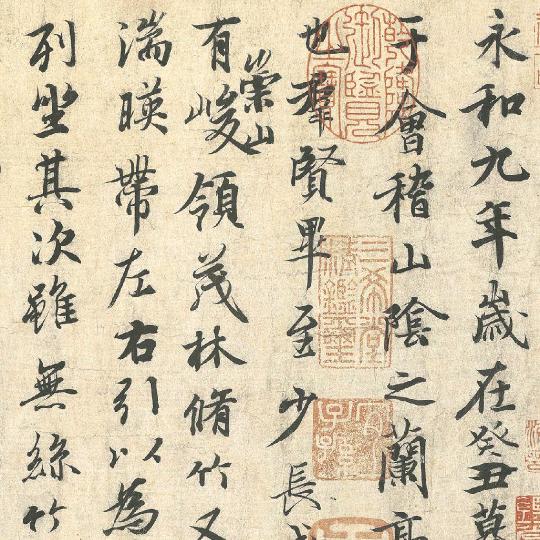 永和九年歲在癸丑
于會稽山陰之蘭亭
也羣賢畢至少長
有崇山峻領茂林脩竹又
湍暎帶左右引以為
列坐其次雖無絲竹
三希堂精鑑璽
宜子孫